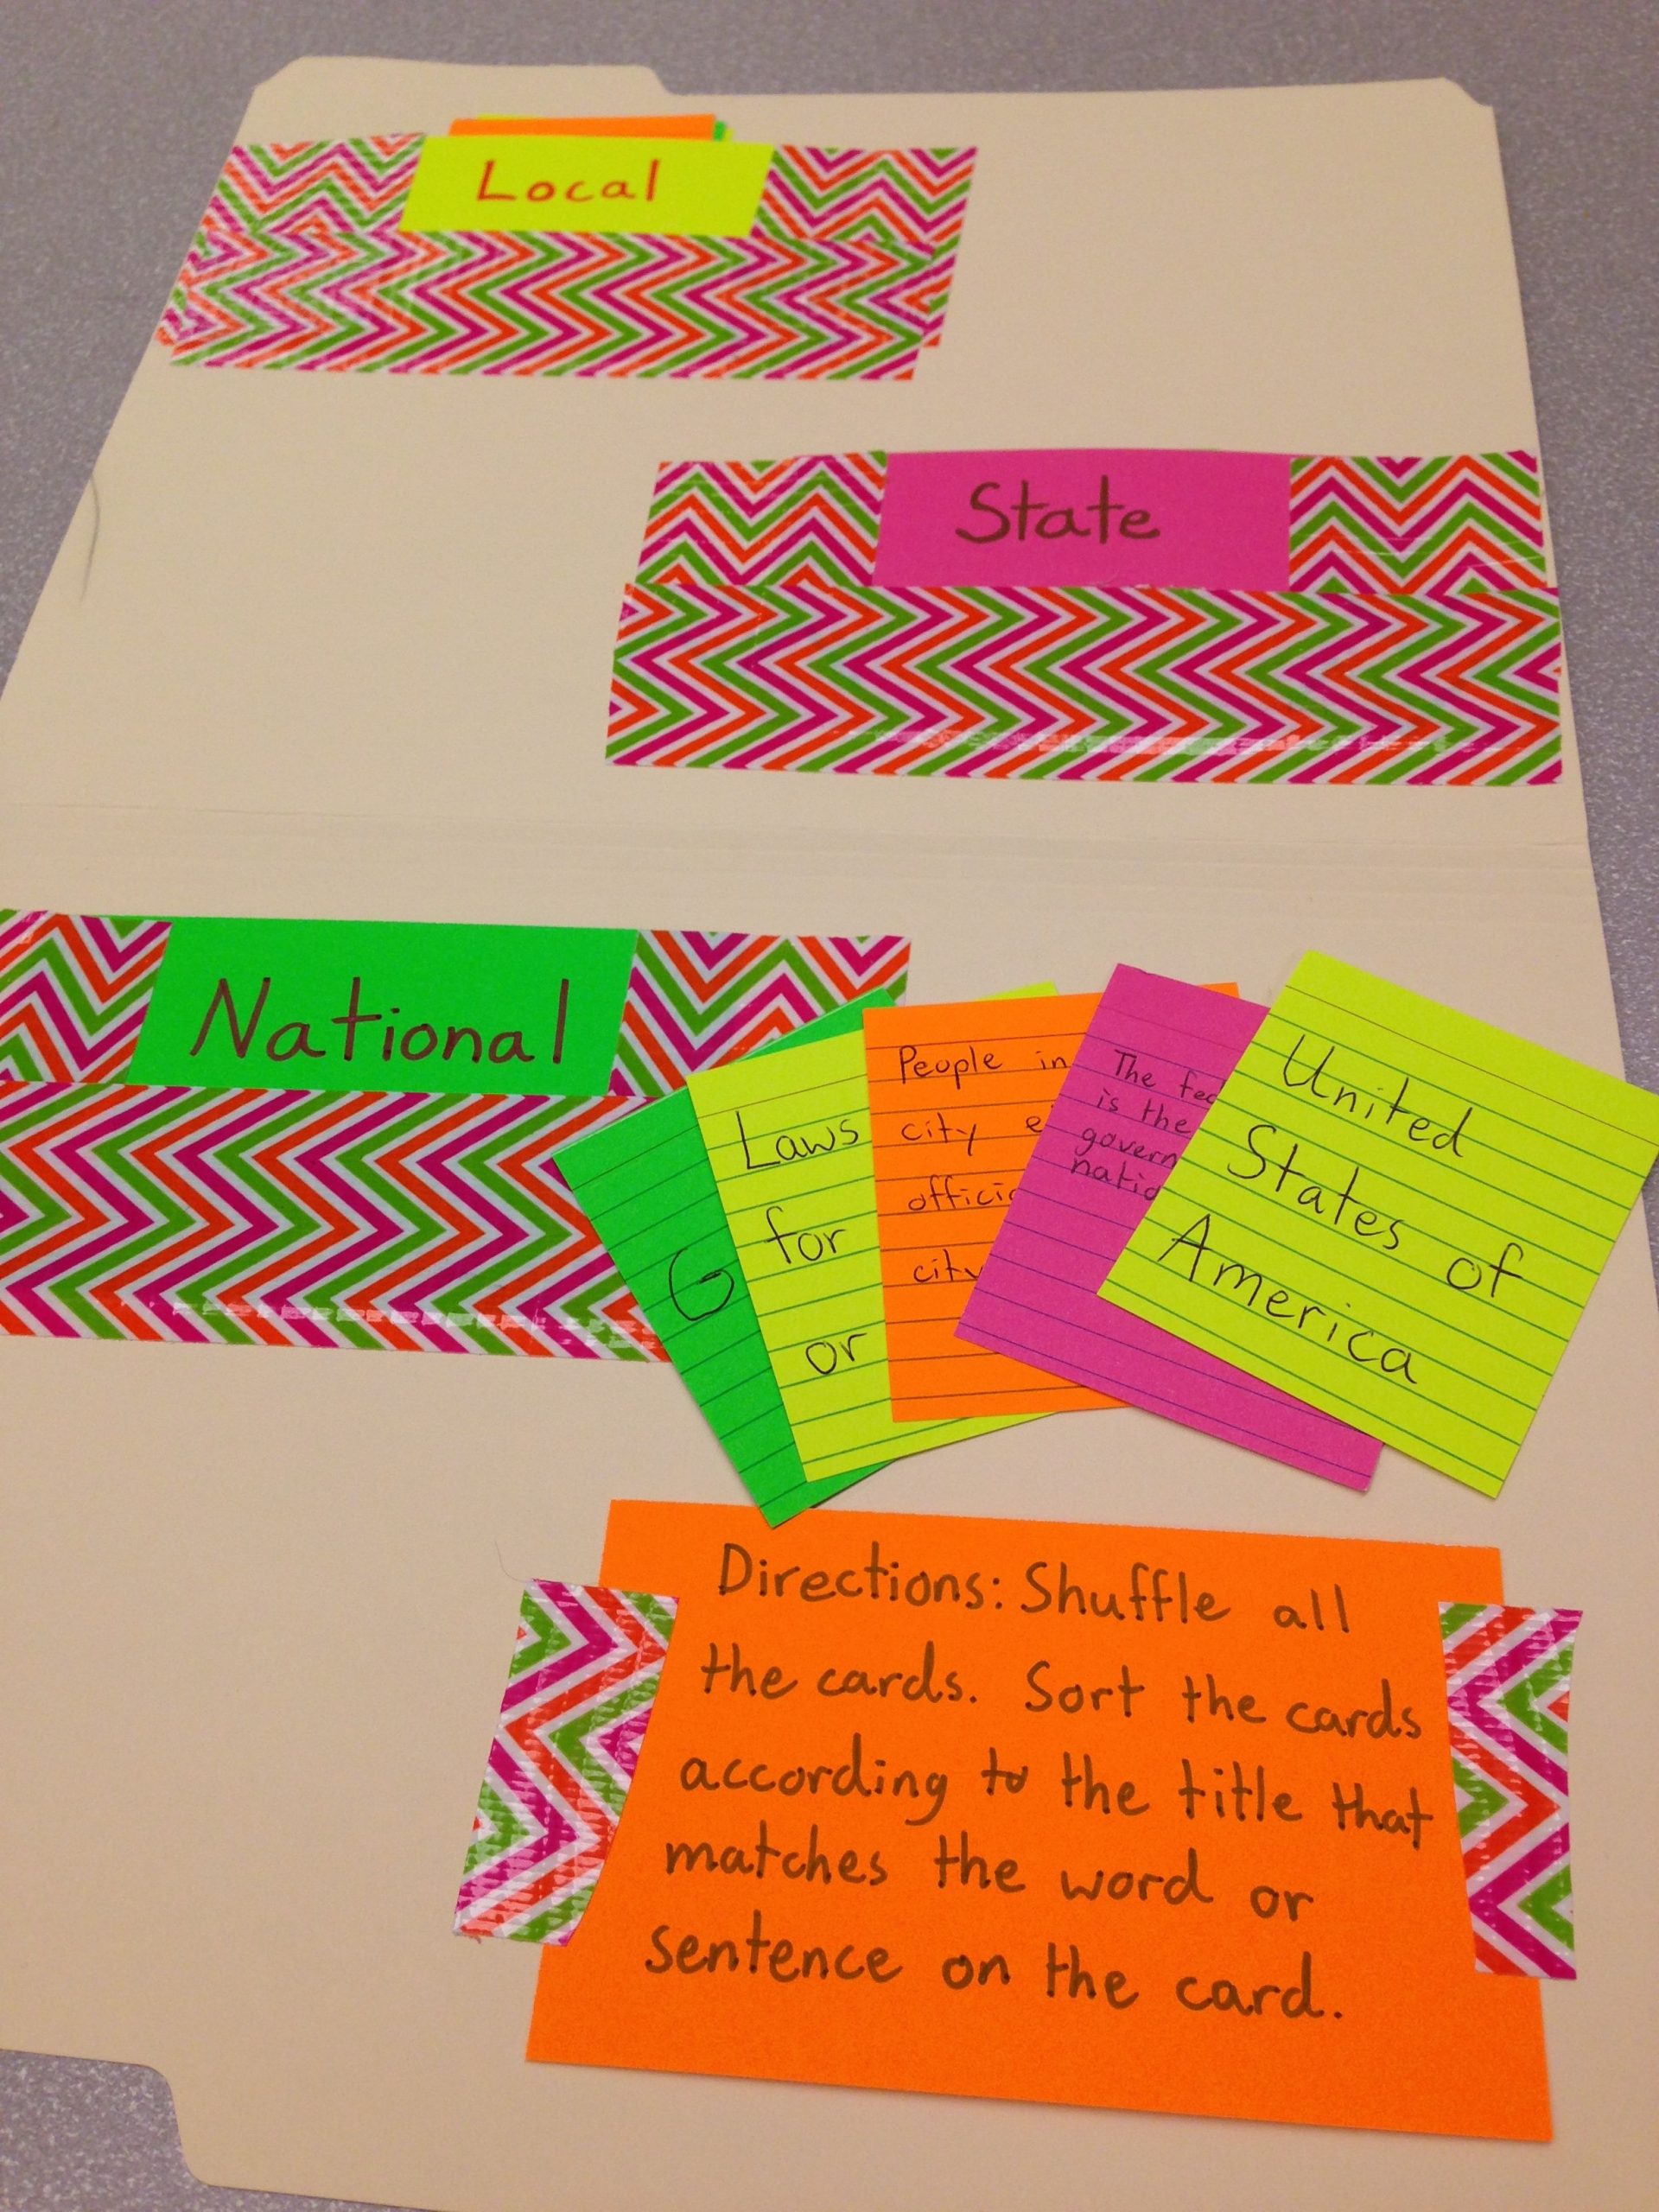 Local
State
National
G
Laws
for
or
People in
city e
offici
city
The fed
is the
govern
natio
United
States of
America
Directions: Shuffle all
the cards. Sort the cards
according to the title that
matches the word or
sentence on the card.